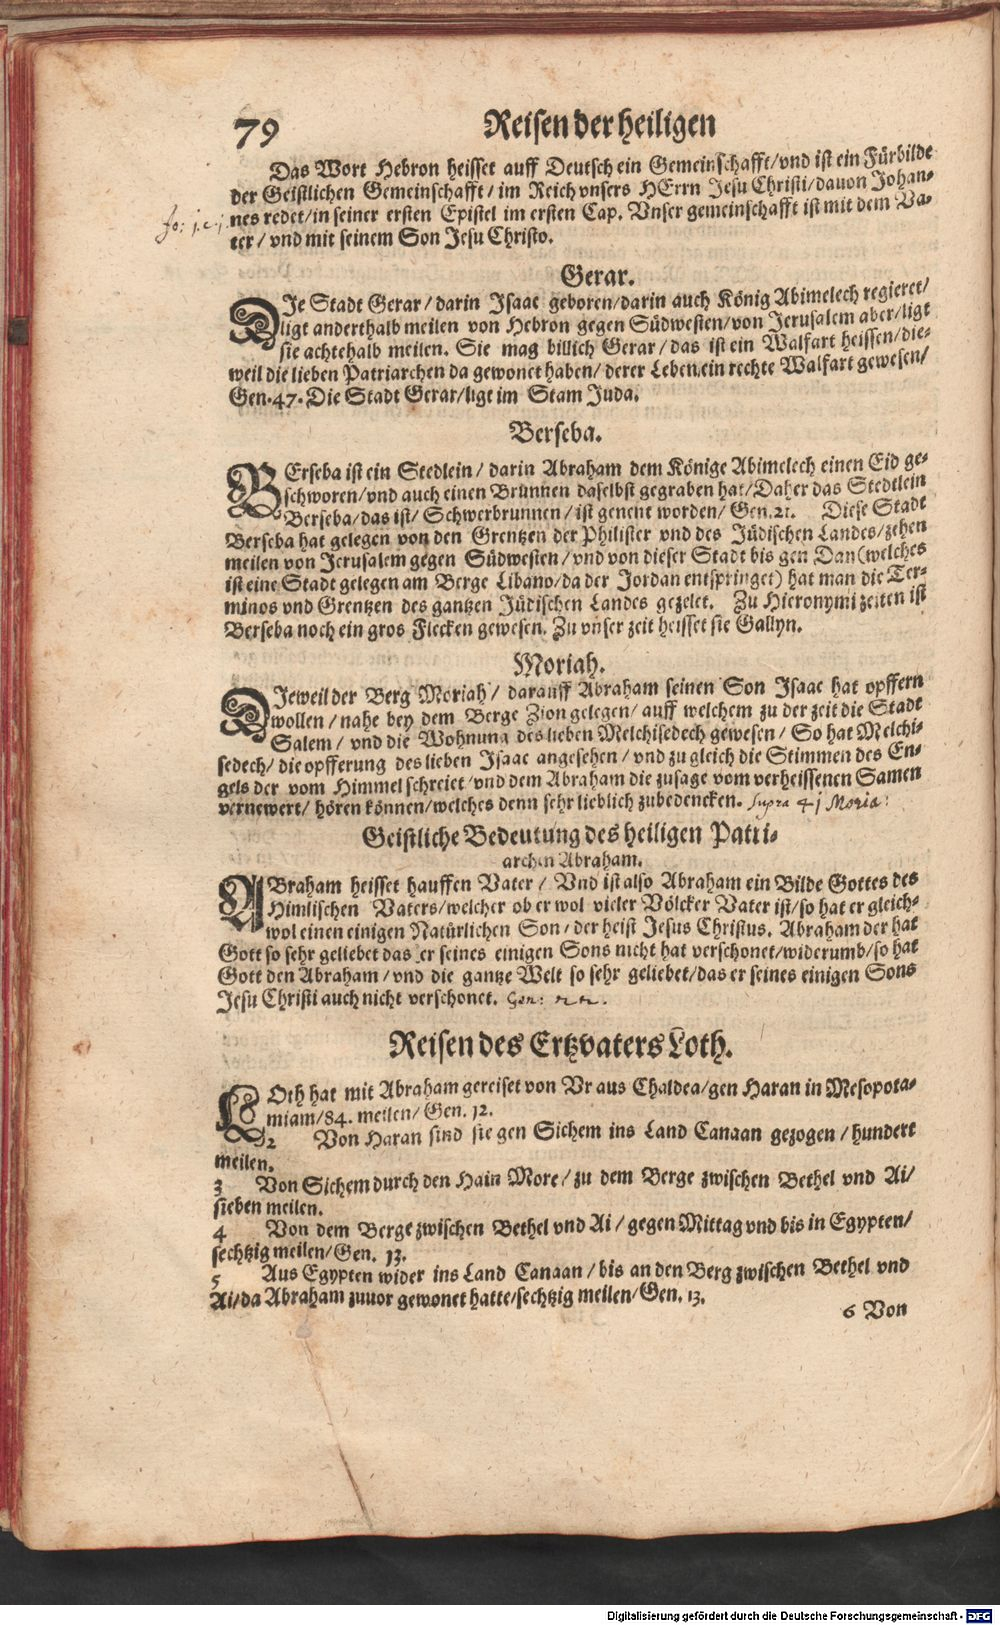 79 Reisen der heiligen
Das Wort Hebron heisset auff Deutsch ein Gemeinschafft/vnd ist ein Fürbilde
der Geistlichen Gemeinschafft/ im Reich vnsers HErrn Jesu Christi/dauon Johan-
nes redet/in seiner ersten Epistel im ersten Cap. Vnser gemeinschafft ist mit dem Va-
Jo: j. c. j.
ter/ vnd mit seinem Son Jesu Christo.
Gerar.
DIe Stadt Gerar/ darin Isaac geboren/darin auch König Abimelech regieret/
ligt anderthalb meilen von Hebron gegen Südwesten/von Jerusalem aber/ligt
sie achtehalb meilen. Sie mag billich Gerar/ das ist ein Walfart heissen/die-
weil die lieben Patriarchen da gewonet haben/ derer Leben ein rechte Walfart gewesen/
Gen. 47. Die Stadt Gerar/ligt im Stam Juda.
Berseba.
BErseba ist ein Stedlein/ darin Abraham dem Könige Abimelech einen Eid ge-
schworen/vnd auch einen Brunnen daselbst gegraben hat/Daher das Stedtlein
Berseba/das ist/ Schwerbrunnen/ ist genent worden/ Gen. 21. Diese Stadt
Berseba hat gelegen von den Grentzen der Philister vnd des Jüdischen Landes/zehen
meilen von Jerusalem gegen Südwesten/ vnd von dieser Stadt bis gen Dan (welches
ist eine Stadt gelegen am Berge Libano/da der Jordan entspringet) hat man die Ter-
minos vnd Grentzen des gantzen Jüdischen Landes gezelet. Zu Hieronymi zeiten ist
Berseba noch ein gros Flecken gewesen. Zu vnser zeit heisset sie Gallyn.
Moriah.
DIeweil der Berg Moriah/ darauff Abraham seinen Son Isaac hat opffern
wollen/ nahe bey dem Berge Zion gelegen/ auff welchem zu der zeit die Stadt
Salem/ vnd die Wohnung des lieben Melchisedech gewesen/ So hat Melchi-
sedech/ die opfferung des lieben Isaac angesehen/ vnd zu gleich die Stimmen des En-
gels der vom Himmel schreiet/vnd dem Abraham die zusage vom verheissenen Samen
vernewert/ hören können/welches denn sehr lieblich zubedencken. supra 4j Moria:
Geistliche Bedeutung des heiligen Patri-
archen Abraham.
ABraham heisset hauffen Vater/ Vnd ist also Abraham ein Bilde Gottes des
Himlischen Vaters/welcher ob er wol vieler Völcker Vater ist/so hat er gleich-
wol einen einigen Natürlichen Son/ der heist Jesus Christus. Abraham der hat
Gott so sehr geliebet das er seines einigen Sons nicht hat verschonet/widerumb/so hat
Gott den Abraham/ vnd die gantze Welt so sehr geliebet/das er seines einigen Sons
Jesu Christi auch nicht verschonet. Gen: 22.
Reisen des Ertzvaters Loth.
LOth hat mit Abraham gereiset von Vr aus Chaldea/gen Haran in Mesopota-
miam/84. meilen/ Gen. 12.
2 Von Haran sind sie gen Sichem ins Land Canaan gezogen/ hundert
meilen.
3 Von Sichem durch den Hain More/ zu dem Berge zwischen Bethel vnd Ai/
sieben meilen.
4 Von dem Berge zwischen Bethel vnd Ai/ gegen Mittag vnd bis in Egypten/
sechtzig meilen/Gen. 13.
5 Aus Egypten wider ins Land Canaan/ bis an den Berg zwischen Bethel vnd
Ai/da Abraham zuuor gewonet hatte/sechtzig meilen/ Gen. 13.
6 Von
Digitalisierung gefördert durch die Deutsche Forschungsgemeinschaft - DFG